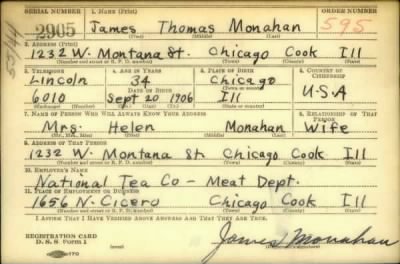 SERIAL NUMBER 1. NAME (Print) ORDER NUMBER
2905 James Thomas Monahan 595
(First) (Middle) (Last)
2. ADDRESS (Print)
1232 W. Montana St. Chicago Cook Ill
(Number and street or R. F. D. number) (Town) (County) (State)
3. TELEPHONE 4. AGE IN YEARS 5. PLACE OF BIRTH 6. COUNTRY OF CITIZENSHIP
Lincoln 34 Chicago
DATE OF BIRTH (Town or county)
6010 Sept 20 1906 Ill U.S.A
(Exchange) (Number) (Mo.) (Day) (Yr.) (State or country)
7. NAME OF PERSON WHO WILL ALWAYS KNOW YOUR ADDRESS 8. RELATIONSHIP OF THAT PERSON
Mrs. Helen Monahan Wife
(Mr., Mrs., Miss) (First) (Middle) (Last)
9. ADDRESS OF THAT PERSON
1232 W. Montana St. Chicago Cook Ill
(Number and street or R. F. D. number) (Town) (County) (State)
10. EMPLOYER'S NAME
National Tea Co - Meat Dept.
11. PLACE OF EMPLOYMENT OR BUSINESS
1656 N. Cicero Chicago Cook Ill
(Number and street or R. F. D. number) (Town) (County) (State)
I AFFIRM THAT I HAVE VERIFIED ABOVE ANSWERS AND THAT THEY ARE TRUE.
REGISTRATION CARD
D. S. S. Form 1
James Monahan